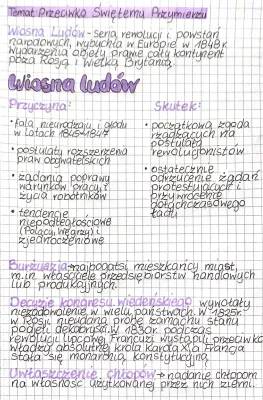 Temat: Przeciwko Świętemu Przymierzu
Wiosna Ludów - seria rewolucji i powstań
narodowych, wybuchła w Europie w 1848 r.
wydarzenia objęły prawie cały kontynent
poza Rosją i Wielką Brytanią.
Wiosna Ludów
Przyczyna:
• fala nieurodzaju i głodu
w latach 1845-1847
• postulaty rozszerzenia
praw obywatelskich
• żądania poprawy
warunków pracy i
życia robotników
• tendencje
niepodległościowe
(Polacy, Węgrzy) i
zjednoczeniowe
Skutek:
• początkowa zgoda
rządzących na
postulaty
rewolucjonistów
• ostatecznie
odrzucenie żądań
protestujących i
przywrócenie
dotychczasowego
ładu
Burżuazja → najbogatsi mieszkańcy miast,
m.in. właściciele przedsiębiorstw handlowych
lub produkcyjnych.
Decyzje kongresu wiedeńskiego wywołały
niezadowolenie w wielu państwach. W 1825r.
w Rosji nieudaną próbę zamachu stanu
podjęli dekabryści. W 1830r. podczas
rewolucji lipcowej Francuzi wystąpili przeciwko
władzy absolutnej króla Karola X, a Francja
stała się monarchią konstytucyjną.
Uwłaszczenie chłopów → nadanie chłopom
na własność użytkowanej przez nich ziemi.